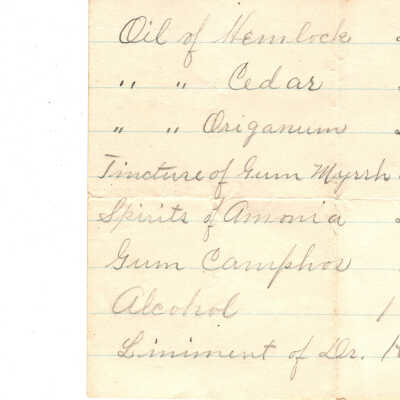 Oil of Hemlock
" " Cedar
" " Origanum
Tincture of Gum Myrrh
Spirits of Amonia
Gum Camphor
Alcohol 1
Liniment of Dr.